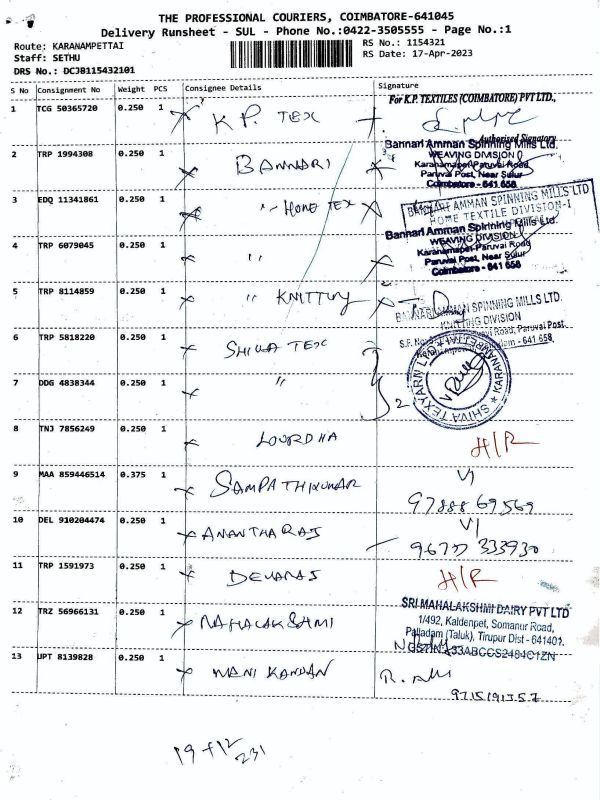 THE PROFESSIONAL COURIERS, COIMBATORE-641045
Delivery Runsheet - SUL - Phone No.:0422-3505555 - Page No.:1
Route: KARANAMPETTAI
RS No.: 1154321
Staff: SETHU
RS Date: 17-Apr-2023
DRS No.: DCJB115432101
S No Consignment No Weight PCS Consignee Details Signature
For K.P. TEXTILES (COIMBATORE) PVT LTD.,
1 TCG 50365720 0.250 1 K.P. TEX
Authorised Signatory
Bannari Amman Spinning Mills Ltd.
WEAVING DIVISION
2 TRP 1994308 0.250 1 BANNARI
Karanampet-Paruvai Road
Paruvai Post, Near Sulur
Coimbatore - 641 658
3 EDQ 11341861 0.250 1 " HOME TEX
BANNARI AMMAN SPINNING MILLS LTD
HOME TEXTILE DIVISION-1
Bannari Amman Spinning Mills Ltd.
WEAVING DIVISION
4 TRP 6079045 0.250 1 "
Karanampet-Paruvai Road
Paruvai Post, Near Sulur
Coimbatore - 641 658
5 TRP 8114859 0.250 1 " KNITTING
BANNARI AMMAN SPINNING MILLS LTD.
KNITTING DIVISION
Road, Paruvai Post,
641 658,
6 TRP 5818220 0.250 1 SHIVA TEX
SHIVA TEXYARN LTD KARANAMPETTAI
7 DDG 4838344 0.250 1 " 2
8 TNJ 7856249 0.250 1 LOURDHA H/R
9 MAA 859446514 0.375 1 SAMPATHKUMAR
97888 69569
10 DEL 910204474 0.250 1 ANANTHARAJ
96777 333930
11 TRP 1591973 0.250 1 DEVARAJ H/R
12 TRZ 56966131 0.250 1 MAHALAKSHMI
SRI MAHALAKSHMI DAIRY PVT LTD
1/492, Kaldenpet, Somanur Road,
Palladam (Taluk), Tirupur Dist - 641401.
13 UPT 8139828 0.250 1 MANI KANDAN
9715191757
19+12
231